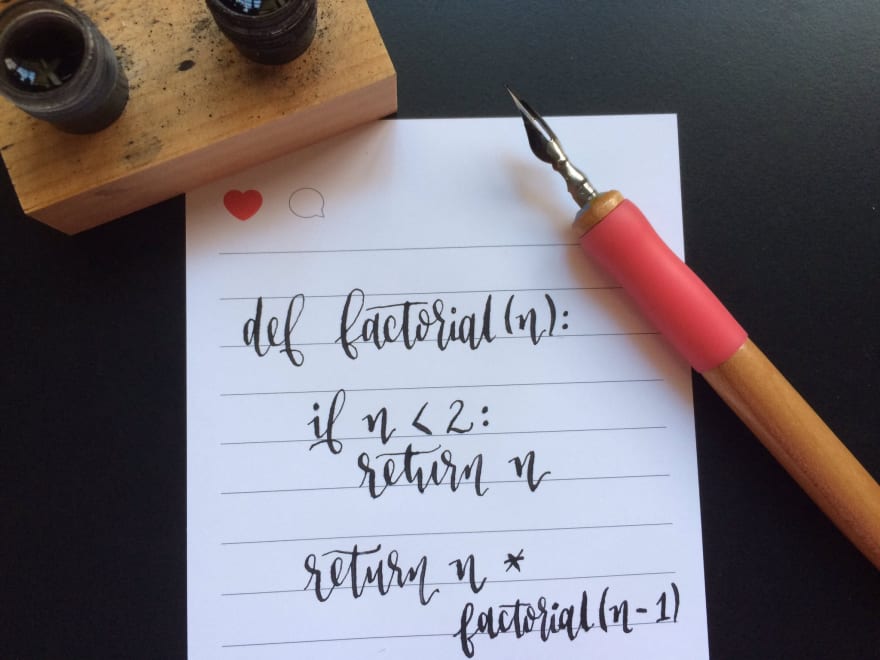 def factorial(n):
if n < 2:
return n
return n *
factorial(n-1)